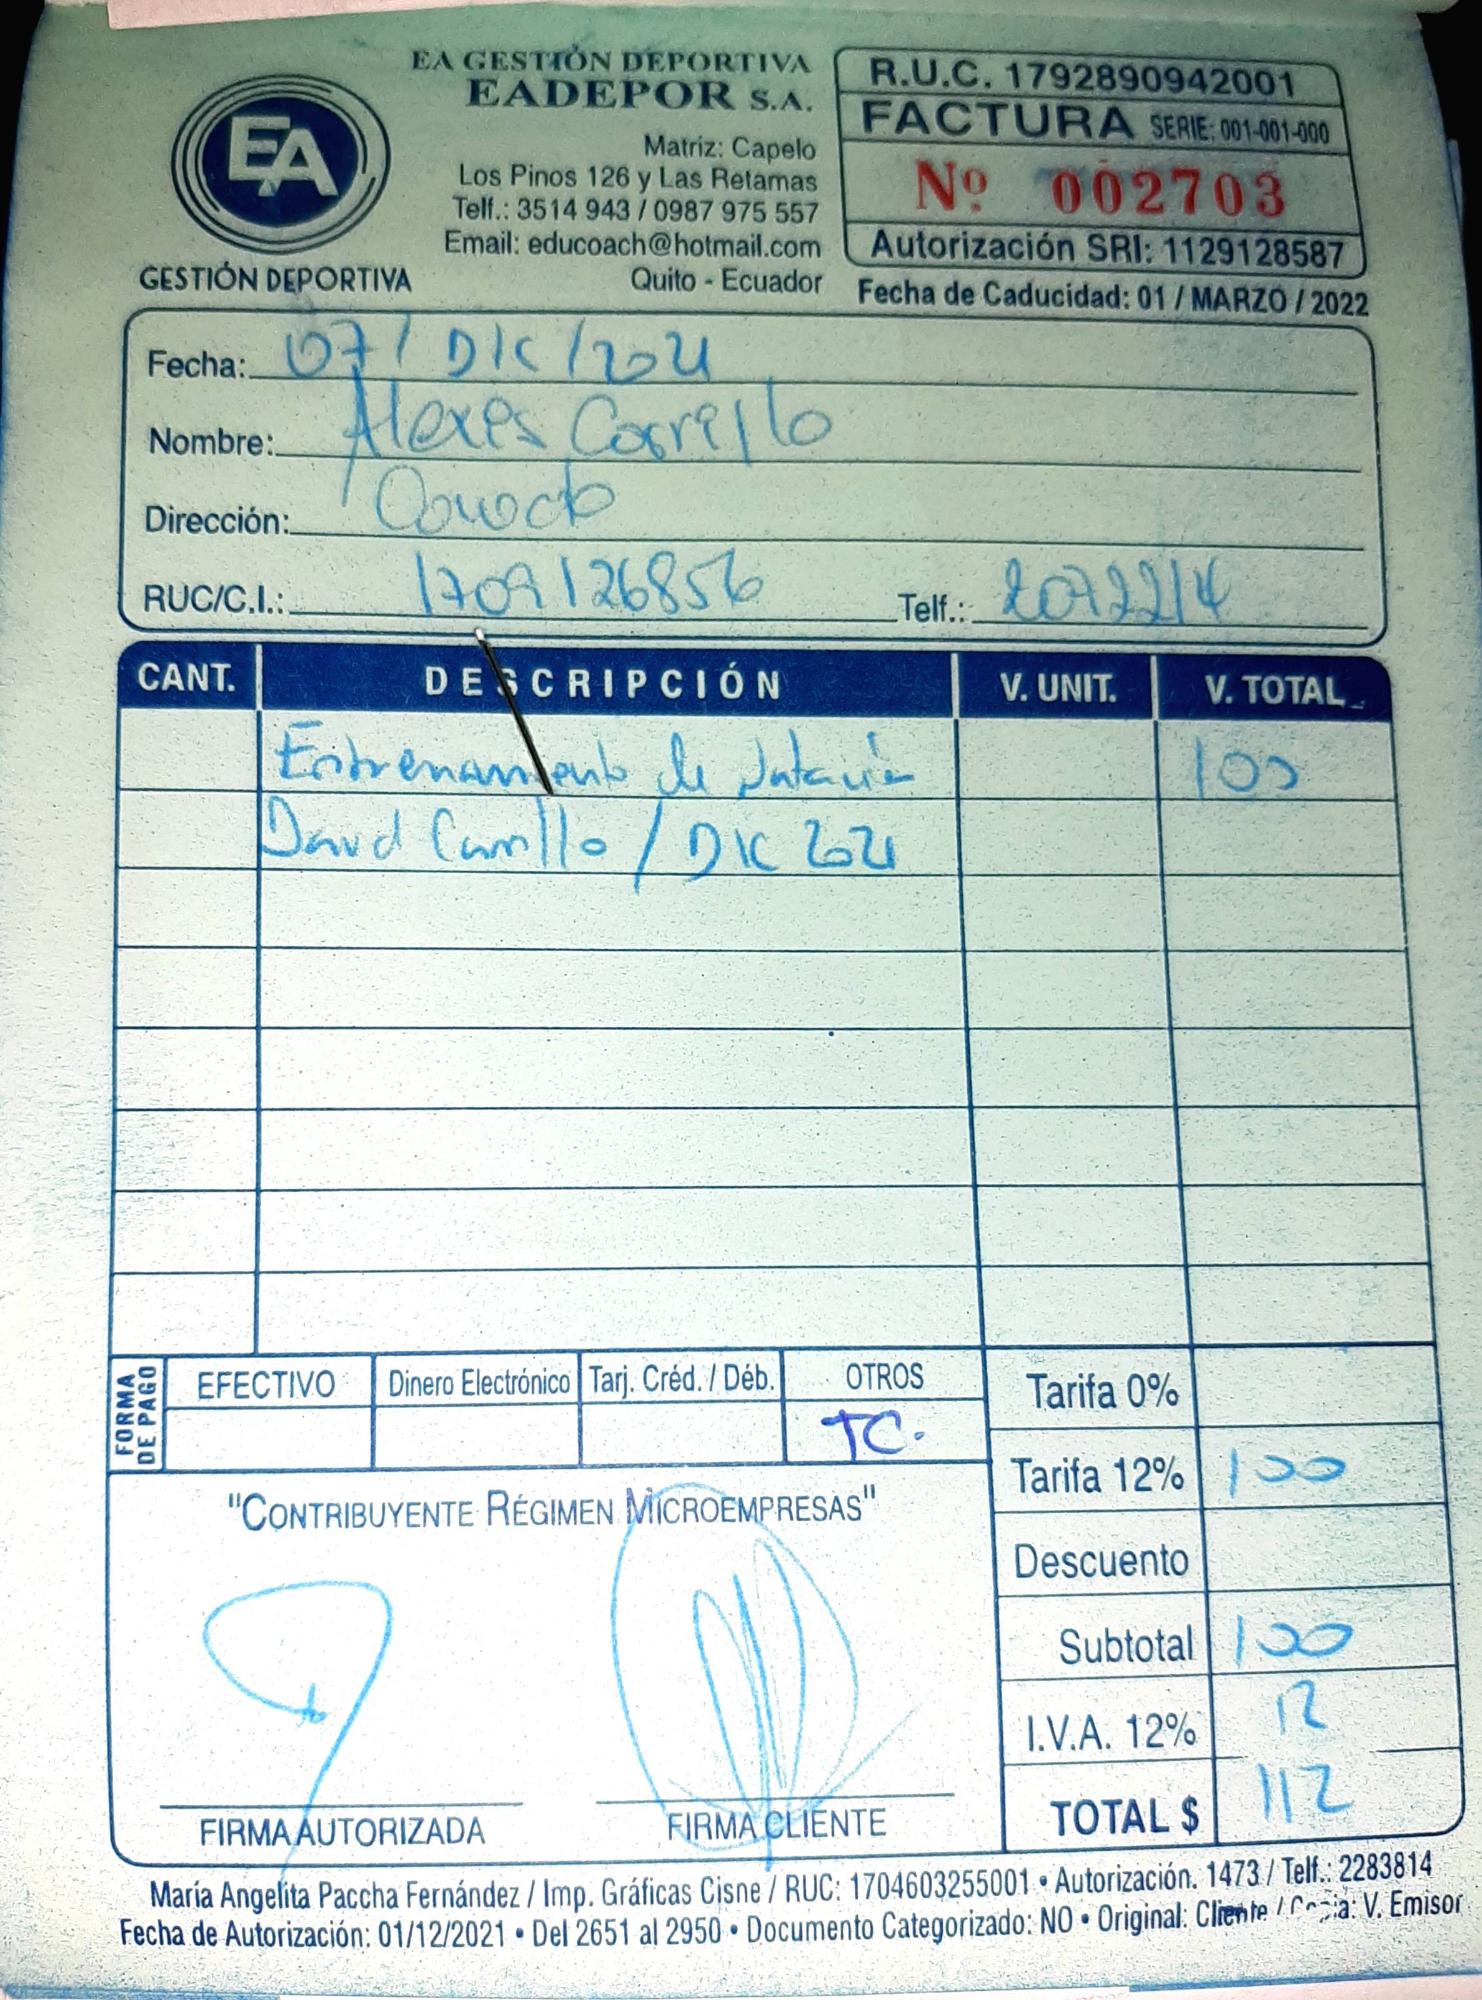 EA GESTIÓN DEPORTIVA
EADEPOR S.A.
EA
GESTIÓN DEPORTIVA
Matriz: Capelo
Los Pinos 126 y Las Retamas
Telf.: 3514 943 / 0987 975 557
Email: educoach@hotmail.com
Quito - Ecuador
R.U.C. 1792890942001
FACTURA SERIE: 001-001-000
Nº 002703
Autorización SRI: 1129128587
Fecha de Caducidad: 01 / MARZO / 2022
Fecha: 07 / DIC / 2021
Nombre: Alexes Carrillo
Dirección: Conocoto
RUC/C.I.: 1709126856 Telf.: 2072214
CANT. DESCRIPCIÓN V. UNIT. V. TOTAL
Entrenamiento de Natación 100
David Carrillo / DIC 2021
FORMA DE PAGO
EFECTIVO Dinero Electrónico Tarj. Créd. / Déb. OTROS
TC.
Tarifa 0%
Tarifa 12% 100
Descuento
Subtotal 100
I.V.A. 12% 12
TOTAL $ 112
"CONTRIBUYENTE RÉGIMEN MICROEMPRESAS"
FIRMA AUTORIZADA FIRMA CLIENTE
María Angelita Paccha Fernández / Imp. Gráficas Cisne / RUC: 1704603255001 • Autorización. 1473 / Telf.: 2283814
Fecha de Autorización: 01/12/2021 • Del 2651 al 2950 • Documento Categorizado: NO • Original: Cliente / Copia: V. Emisor